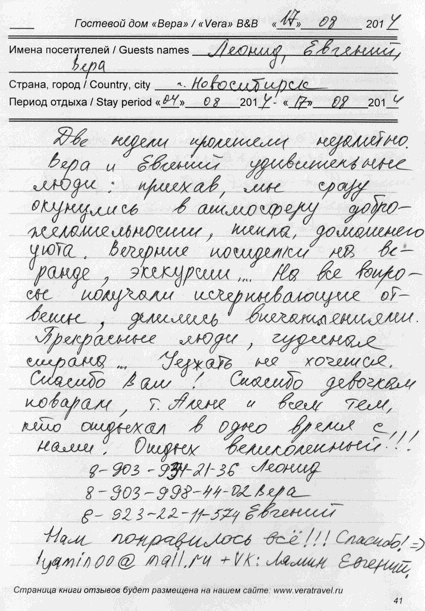 Гостевой дом «Вера» / «Vera» B&B «17» 08 2014
Имена посетителей / Guests names Леонид, Евгений,
Вера
Страна, город / Country, city г. Новосибирск
Период отдыха / Stay period «04» 08 2014 - «17» 08 2014
Две недели пролетели незаметно.
Вера и Евгений удивительные
люди: приехав, мы сразу
окунулись в атмосферу добро-
желательности, тепла, домашнего
уюта. Вечерние посиделки на ве-
ранде, экскурсии.... На все вопро-
сы получали исчерпывающие от-
веты, делились впечатлениями.
Прекрасные люди, чудесная
страна... Уезжать не хочется.
Спасибо Вам! Спасибо девочкам
поварам, т. Алене и всем тем,
кто отдыхал в одно время с
нами. Отдых великолепный!!!
8-903-931-21-36 Леонид
8-903-998-44-02 Вера
8-923-22-11-574 Евгений
Нам понравилось всё!!! Спасибо! =)
lyamin00@mail.ru + VK: Лямин Евгений.
Страница книги отзывов будет размещена на нашем сайте: www.veratravel.ru
41